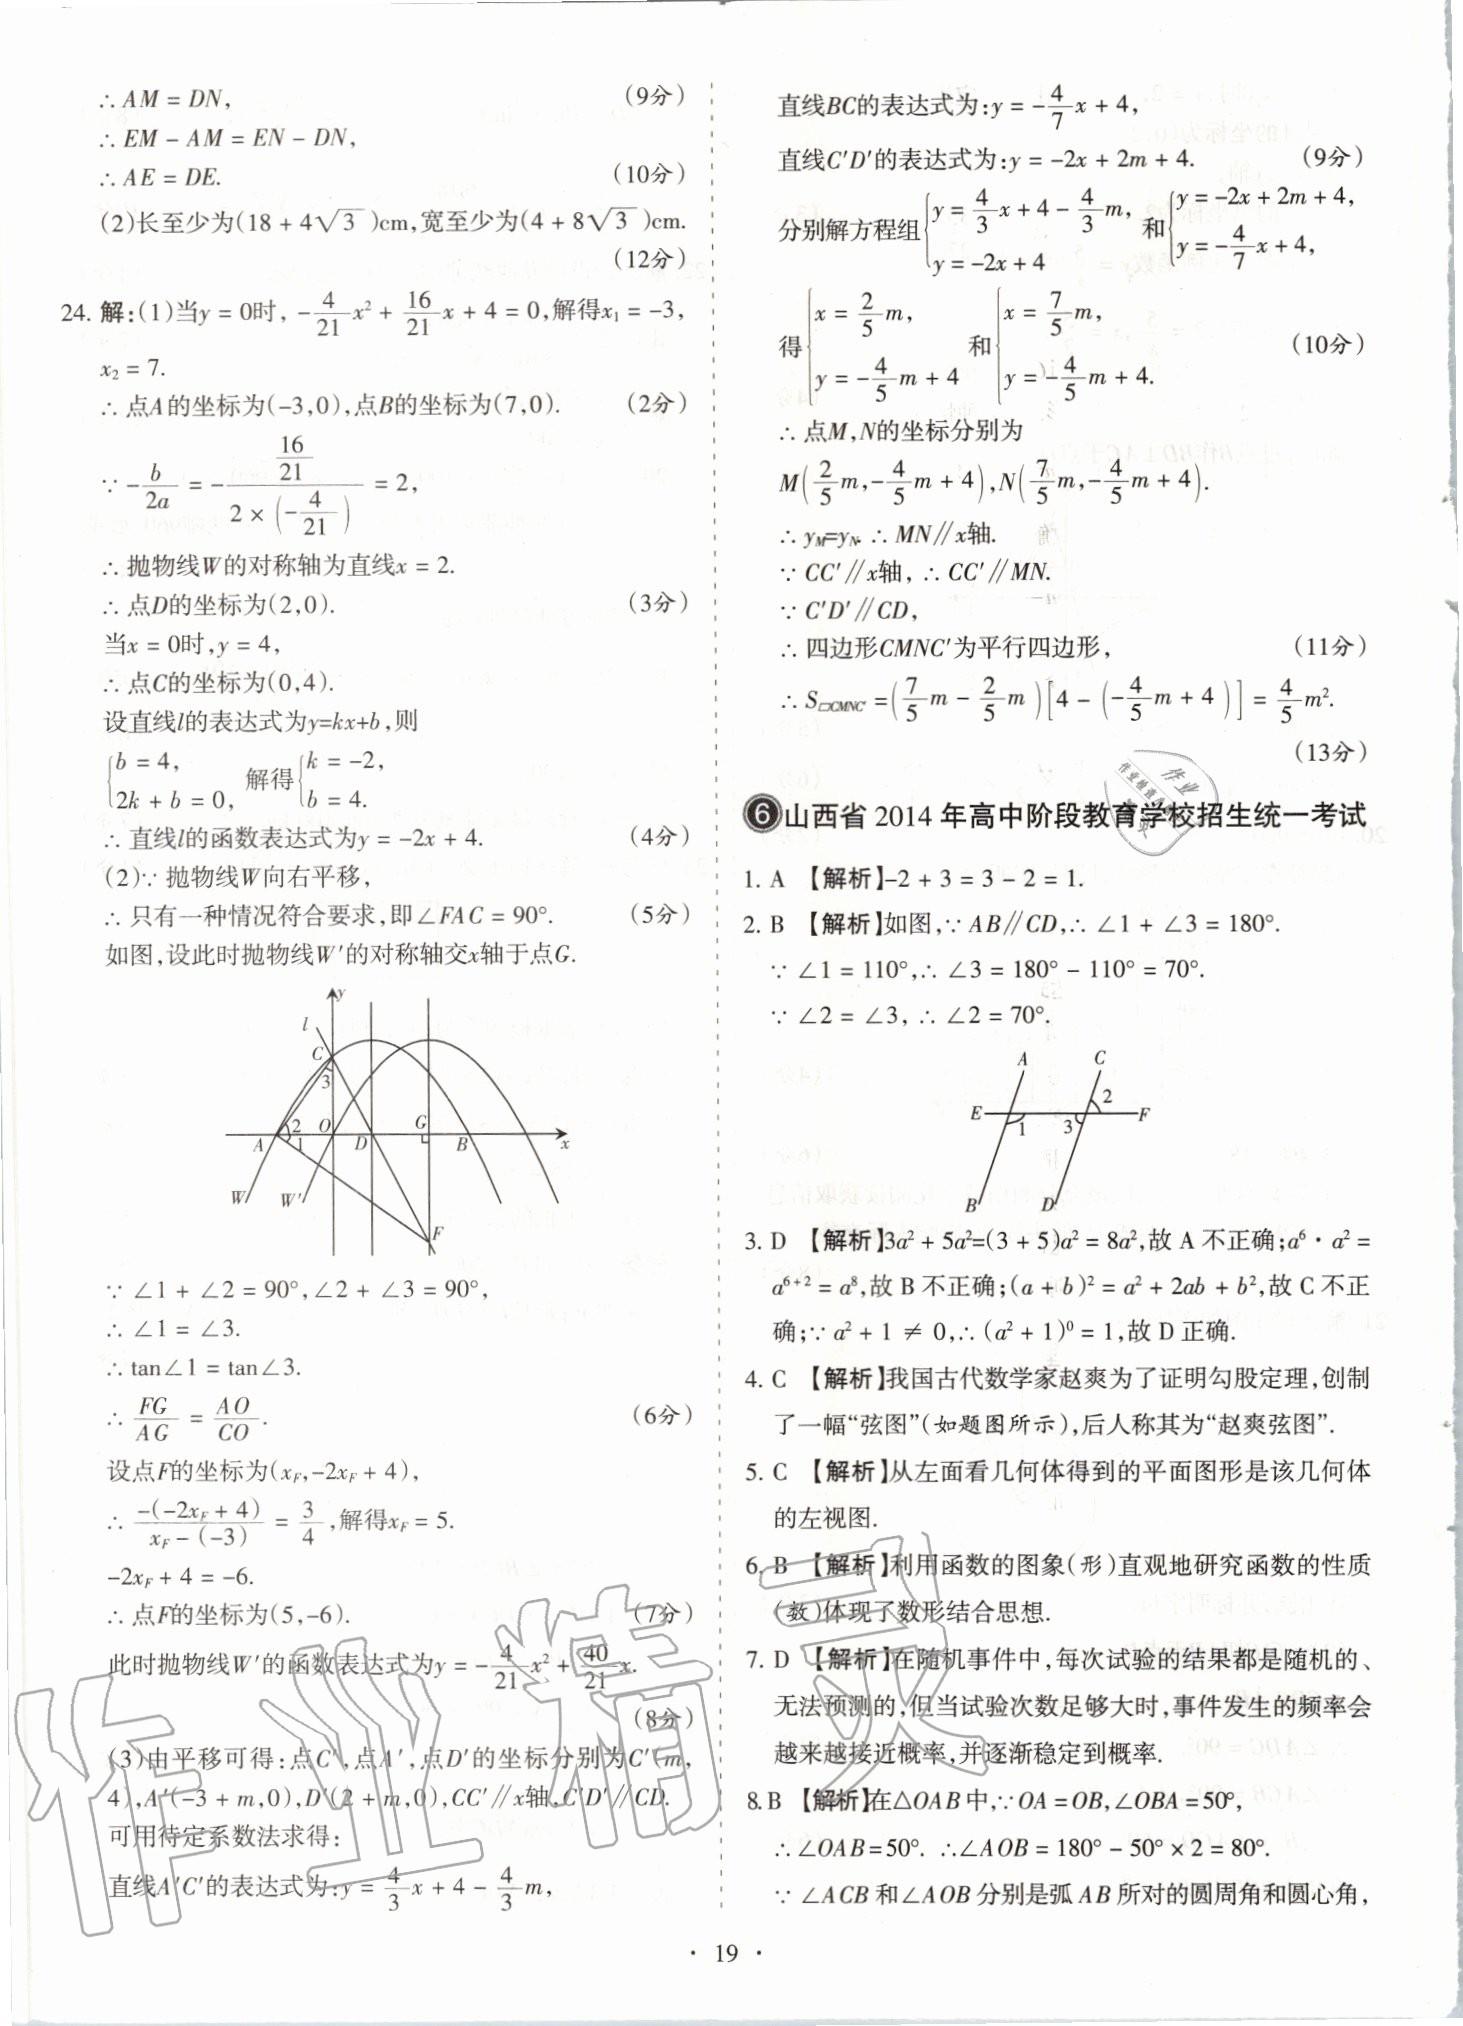 ∴ AM = DN, (9分)
∴ EM - AM = EN - DN,
∴ AE = DE. (10分)
(2)长至少为(18 + 4√3)cm,宽至少为(4 + 8√3)cm.
(12分)
24. 解:(1)当y = 0时, -4/21x² + 16/21x + 4 = 0,解得x₁ = -3,
x₂ = 7.
∴ 点A的坐标为(-3,0),点B的坐标为(7,0). (2分)
∵ -b/2a = -(16/21)/(2 × (-4/21)) = 2,
∴ 抛物线W的对称轴为直线x = 2.
∴ 点D的坐标为(2,0). (3分)
当x = 0时,y = 4,
∴ 点C的坐标为(0,4).
设直线l的表达式为y=kx+b,则
{b = 4, 2k + b = 0, 解得{k = -2, b = 4.
∴ 直线l的函数表达式为y = -2x + 4. (4分)
(2)∵ 抛物线W向右平移,
∴ 只有一种情况符合要求,即∠FAC = 90°. (5分)
如图,设此时抛物线W′的对称轴交x轴于点G.
y
l
C
3
2
O
G
A
1
D
B
x
W
W′
F
∵ ∠1 + ∠2 = 90°,∠2 + ∠3 = 90°,
∴ ∠1 = ∠3.
∴ tan∠1 = tan∠3.
∴ FG/AG = AO/CO. (6分)
设点F的坐标为(x_F,-2x_F + 4),
∴ -(-2x_F + 4)/(x_F - (-3)) = 3/4,解得x_F = 5.
-2x_F + 4 = -6.
∴ 点F的坐标为(5,-6). (7分)
此时抛物线W′的函数表达式为y = -4/21x² + 40/21x.
(8分)
(3)由平移可得:点C′,点A′,点D′的坐标分别为C′(m,
4),A′(-3 + m,0),D′(2 + m,0),CC′∥x轴,C′D′∥CD.
可用待定系数法求得:
直线A′C′的表达式为:y = 4/3x + 4 - 4/3m,
直线BC的表达式为:y = -4/7x + 4,
直线C′D′的表达式为:y = -2x + 2m + 4. (9分)
分别解方程组{y = 4/3x + 4 - 4/3m, y = -2x + 4 和{y = -2x + 2m + 4, y = -4/7x + 4,
得{x = 2/5m, y = -4/5m + 4 和{x = 7/5m, y = -4/5m + 4. (10分)
∴ 点M,N的坐标分别为
M(2/5m,-4/5m + 4),N(7/5m,-4/5m + 4).
∴ y_M=y_N. ∴ MN∥x轴.
∵ CC′∥x轴, ∴ CC′∥MN.
∵ C′D′∥CD,
∴ 四边形CMNC′为平行四边形, (11分)
∴ S▱CMNC′ =(7/5m - 2/5m)[4 - (-4/5m + 4)] = 4/5m².
(13分)
6 山西省 2014 年高中阶段教育学校招生统一考试
1. A 【解析】-2 + 3 = 3 - 2 = 1.
2. B 【解析】如图,∵ AB∥CD,∴ ∠1 + ∠3 = 180°.
∵ ∠1 = 110°,∴ ∠3 = 180° - 110° = 70°.
∵ ∠2 = ∠3, ∴ ∠2 = 70°.
A
C
E
2
F
1
3
B
D
3. D 【解析】3a² + 5a²=(3 + 5)a² = 8a²,故 A 不正确;a⁶ · a² =
a⁶⁺² = a⁸,故 B 不正确;(a + b)² = a² + 2ab + b²,故 C 不正
确;∵ a² + 1 ≠ 0,∴ (a² + 1)⁰ = 1,故 D 正确.
4. C 【解析】我国古代数学家赵爽为了证明勾股定理,创制
了一幅“弦图”(如题图所示),后人称其为“赵爽弦图”.
5. C 【解析】从左面看几何体得到的平面图形是该几何体
的左视图.
6. B 【解析】利用函数的图象(形)直观地研究函数的性质
(数)体现了数形结合思想.
7. D 【解析】在随机事件中,每次试验的结果都是随机的、
无法预测的,但当试验次数足够大时,事件发生的频率会
越来越接近概率,并逐渐稳定到概率.
8. B 【解析】在△OAB中,∵OA = OB,∠OBA = 50°,
∴∠OAB = 50°. ∴∠AOB = 180° - 50° × 2 = 80°.
∵ ∠ACB 和∠AOB 分别是弧 AB 所对的圆周角和圆心角,
· 19 ·
作业精灵